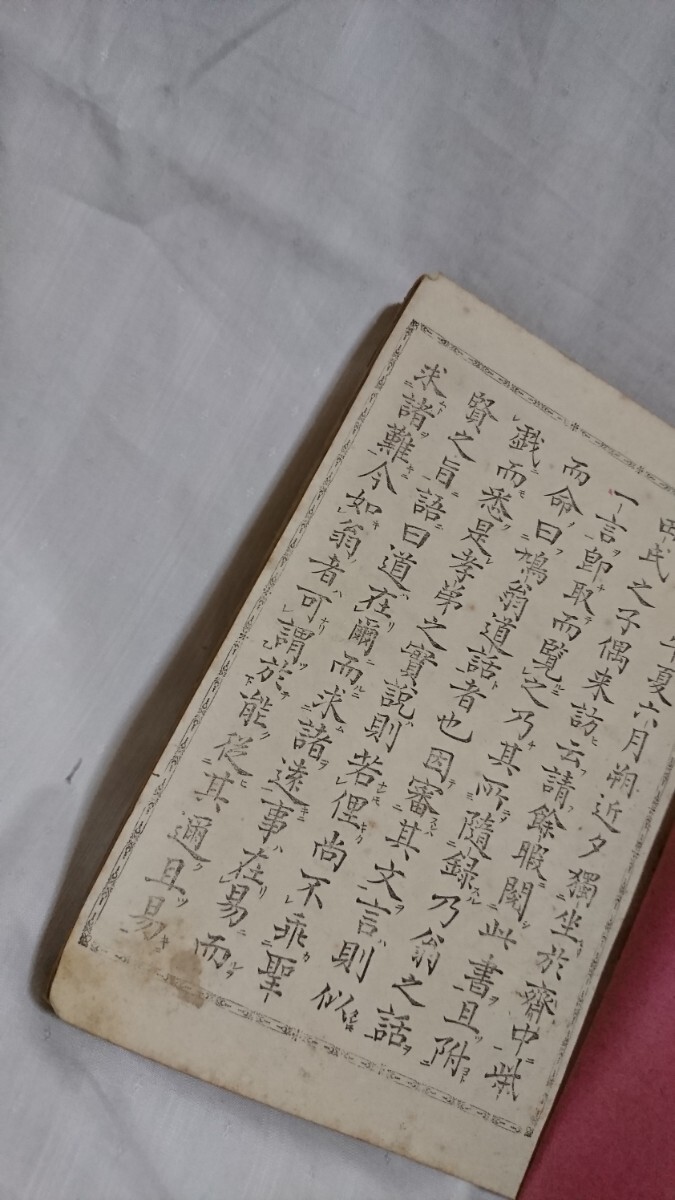 午夏六月朔近夕獨坐於齋中柴
田氏之子偶来訪云請餘暇閲此書且附
一言卽取而覧之乃其所隨録乃翁之話
而命曰鳩翁道話者也因審其文言則似
戯而悉是孝弟之實説則若俚尚不乖聖
賢之旨語曰道在爾而求諸遠事在易而
求諸難今如翁者可謂於能從其邇且易